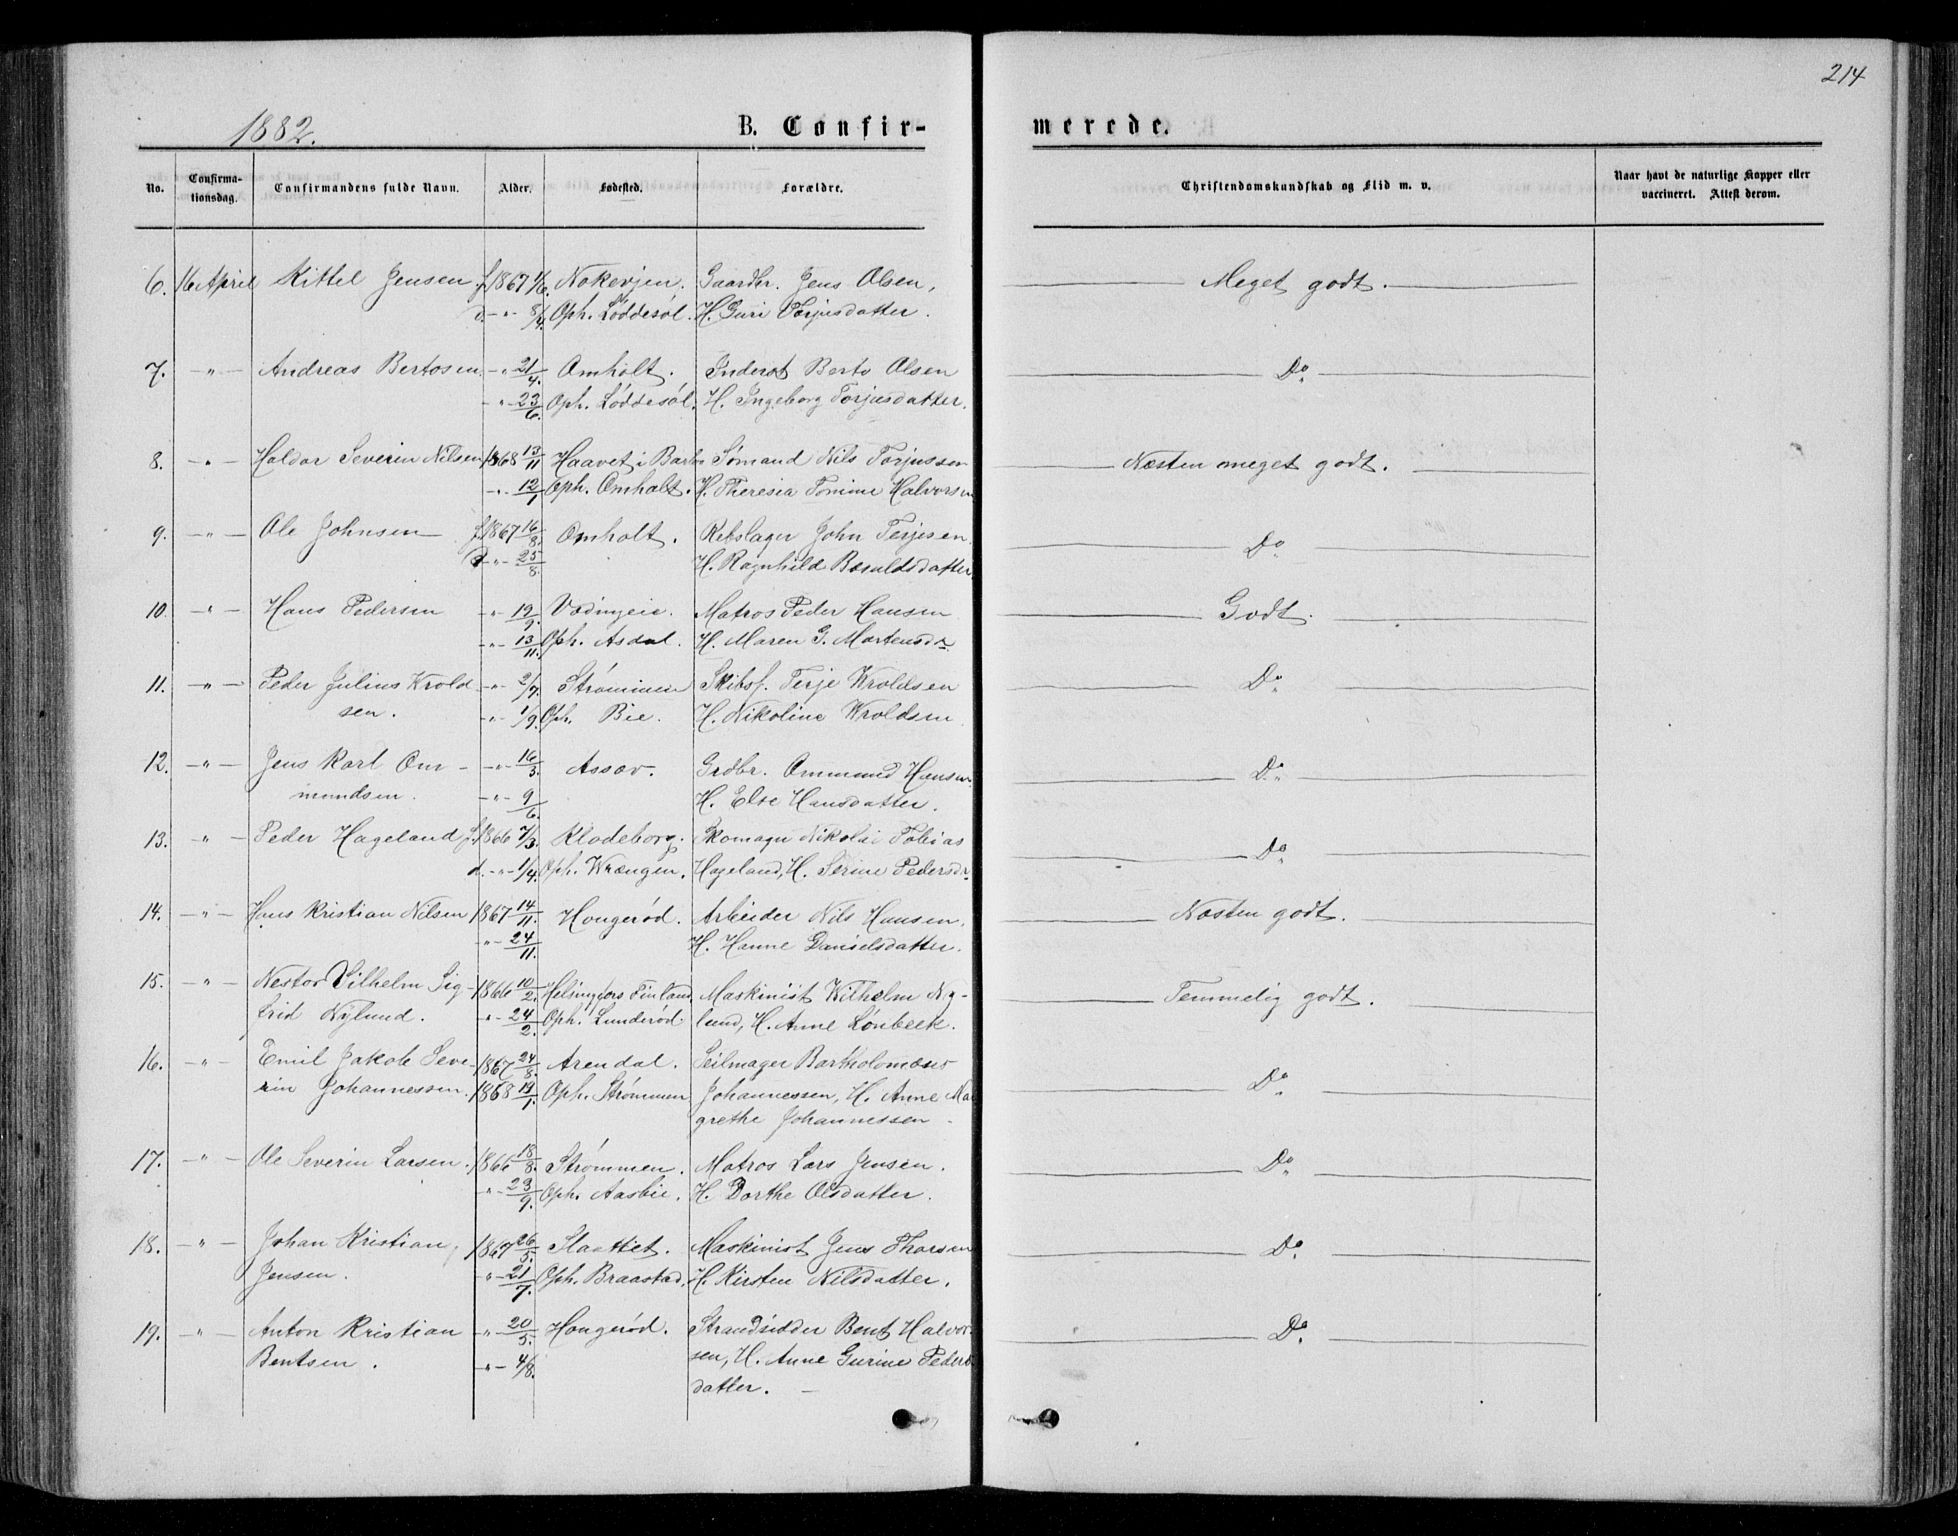 214
1882.
B. Confir-
merede.
No.
Confirma-
tionsdag.
Confirmandens fulde Navn.
Alder.
Fødested.
Forældre.
Christendomskundskab og Flid m. v.
Naar havt de naturlige Kopper eller
vaccineret. Attest derom.
6. 16 April Kittel Jensen f. 1867 1/6. Gaardbr. Jens Olsen, Meget godt.
d. - " - 8/4. Oph. Løddesøl. H. Guri Torjusdatter.
7. - " - Andreas Bertosen - " - 21/4. Omholt. Inderst Berto Olsen Do
- " - 23/6. Oph. Løddesøl. H. Ingeborg Torjusdatter.
8. - " - Haldor Severin Nilsen 1868 13/11 Haavet i Barbo Sømand Nils Torjussen Næsten meget godt.
- " - 12/1 Oph. Omholt. H. Theresia Tomine Halvorsen
9. - " - Ole Johnsen f. 1867 16/8. Omholt. Rebslager John Terjesen Do
d - " - 25/8. H. Ragnhild
10. - " - Hans Pedersen - " - 19/9. Matros Peder Hansen Godt.
- " - 13/11. Oph. Asdal. H. Maren G. Mortensdr.
11. - " - Peder Julius Wrold - " - 2/7. Strømmen Skibsf. Terje Wroldsen Do
sen. - " - 1/9. Oph. Bie. H. Nikoline Wroldsen
12. - " - Jens Karl Om - - " - 16/3. Assav. Grdbr. Ommund Hansen Do
mundsen. - " - 9/6. H. Else Hansdatter.
13. - " - Peder Hageland f. 1866 7/3. Klodeborg. Skomager Nikolai Tobias Do
d. - " - 1/4. Oph. Wrængen. Hageland, H. Serine Pedersdr
14. - " - Hans Kristian Nilsen 1867 14/11. Hougerød. Arbeider Nils Hansen. Næsten godt.
- " - 24/11. H. Hanne Danielsdatter.
15. - " - Nestor Vilhelm Sig- 1866 10/2. Helsingfors Finland Maskinist Wilhelm Ny- Temmelig godt.
frid Nylund. - " - 24/2. Oph. Lunderød. lund, H. Anne Lønbeck.
16. - " - Emil Jakob Seve- 1867 24/8. Arendal. Seilmager Bartholomæus Do
rin Johannessen. 1868 19/1. Oph. Strømmen Johannessen, H. Anne Mar
grethe Johannessen
17. - " - Ole Severin Larsen. 1866 18/8. Strømmen. Matros Lars Jensen. Do
- " - 23/9. Oph. Aasbie. H. Dorthe Olsdatter.
18. - " - Johan Kristian 1867 26/5. Slaattet. Maskinist Jens Thorsen Do
Jensen. - " - 21/7. Oph. Braastad. H. Kirsten Nilsdatter.
19. - " - Anton Kristian - " - 20/5. Hougerød. Strandsidder Bent Halvor- Do
Bentsen. - " - 4/8. sen, H. Anne Gurine Peders
datter.